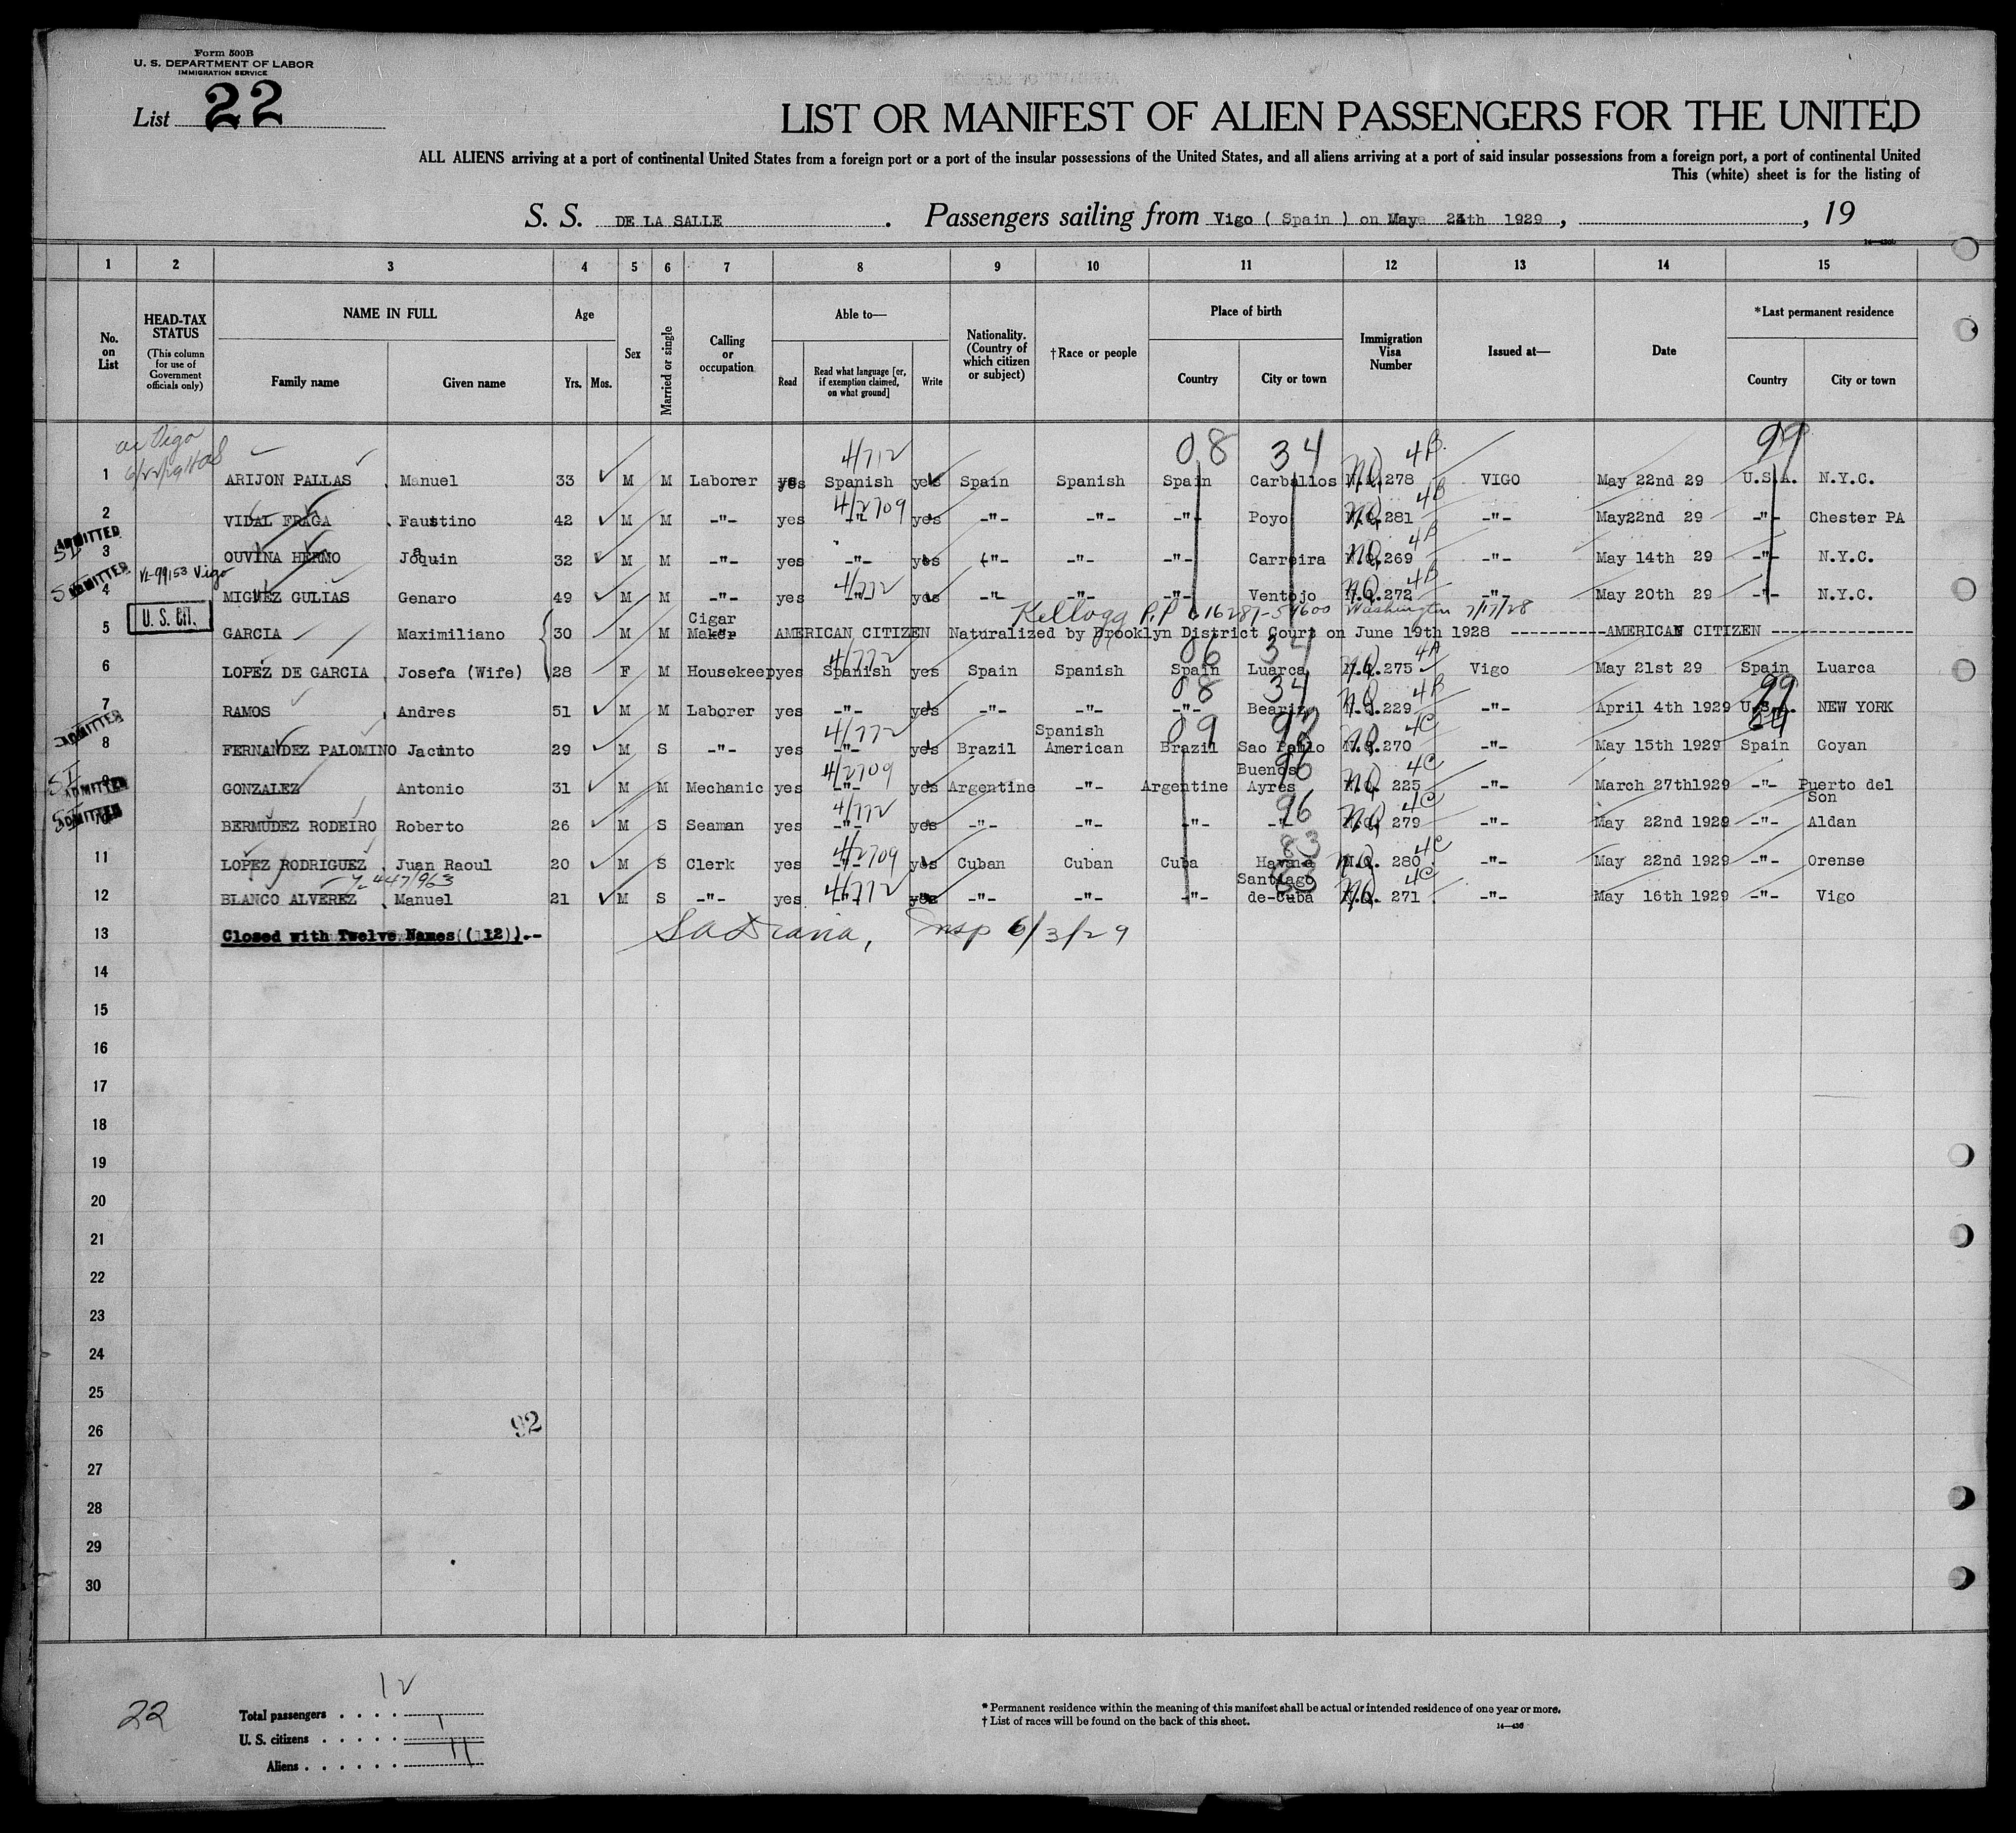 Form 500B
U. S. DEPARTMENT OF LABOR
IMMIGRATION SERVICE
List 22
LIST OR MANIFEST OF ALIEN PASSENGERS FOR THE UNITED
ALL ALIENS arriving at a port of continental United States from a foreign port or a port of the insular possessions of the United States, and all aliens arriving at a port of said insular possessions from a foreign port, a port of continental United
This (white) sheet is for the listing of
S. S. DE LA SALLE . Passengers sailing from Vigo ( Spain ) on May 24th 1929 , , 19
1 2 3 4 5 6 7 8 9 10 11 12 13 14 15
No. on List
HEAD-TAX STATUS
(This column for use of Government officials only)
NAME IN FULL
Family name Given name
Age
Yrs. Mos.
Sex
Married or single
Calling or occupation
Able to—
Read
Read what language [or, if exemption claimed, on what ground]
Write
Nationality. (Country of which citizen or subject)
†Race or people
Place of birth
Country City or town
Immigration Visa Number
Issued at—
Date
*Last permanent residence
Country City or town
08 34 4B 99
1 ARIJON PALLAS Manuel 33 M M Laborer yes Spanish yes Spain Spanish Spain Carballos N.Q.278 VIGO May 22nd 29 U.S.A. N.Y.C.
4/2709 4B
2 VIDAL FRAGA Faustino 42 M M -"- yes -"- yes -"- -"- -"- Poyo N.Q.281 -"- May22nd 29 -"- Chester PA
ADMITTED 4B
3 OUVINA HERMO Joaquin 32 M M -"- yes -"- yes -"- -"- -"- Carreira N.Q.269 -"- May 14th 29 -"- N.Y.C.
ADMITTED Vigo 4/772 4B
4 MIGUEZ GULIAS Genaro 49 M M -"- yes -"- yes -"- -"- -"- Ventojo N.Q.272 -"- May 20th 29 -"- N.Y.C.
U. S. CIT. Kellogg P.P. Washington 7/17/28
5 GARCIA Maximiliano 30 M M Cigar Maker AMERICAN CITIZEN Naturalized by Brooklyn District Court on June 19th 1928 ----------AMERICAN CITIZEN ---------------
4/772 06 34 4A
6 LOPEZ DE GARCIA Josefa (Wife) 28 F M Housekeep yes Spanish yes Spain Spanish Spain Luarca N.Q.275 Vigo May 21st 29 Spain Luarca
08 34 4B 99
7 RAMOS Andres 51 M M Laborer yes -"- yes -"- -"- -"- Beariz N.Q.229 -"- April 4th 1929 U.S.A. NEW YORK
ADMITTED 4/772 09 4C
8 FERNANDEZ PALOMINO Jacinto 29 M S -"- yes -"- yes Brazil Spanish American Brazil Sao Paulo N.Q.270 -"- May 15th 1929 Spain Goyan
SI ADMITTED 4/2709 96 4C
9 GONZALEZ Antonio 31 M M Mechanic yes -"- yes Argentine -"- Argentine Buenos Ayres N.Q. 225 -"- March 27th1929 -"- Puerto del Son
SI ADMITTED 4/772 96 4C
10 BERMUDEZ RODEIRO Roberto 26 M S Seaman yes -"- yes -"- -"- -"- -"- N.Q. 279 -"- May 22nd 1929 -"- Aldan
4/2709 83 4C
11 LOPEZ RODRIGUEZ Juan Raoul 20 M S Clerk yes -"- yes Cuban Cuban Cuba Havana N.Q. 280 -"- May 22nd 1929 -"- Orense
4/772 83 4C
12 BLANCO ALVEREZ Manuel 21 M S -"- yes -"- yes -"- -"- -"- Santiago de-Cuba N.Q. 271 -"- May 16th 1929 -"- Vigo
13 Closed with Twelve Names ( 12 ).- Insp 6/3/29
14
15
16
17
18
19
20
21
22
23
24
25
26 92
27
28
29
30
22
Total passengers . . . . 12
U. S. citizens . . . . . 1
Aliens . . . . . . 11
* Permanent residence within the meaning of this manifest shall be actual or intended residence of one year or more.
† List of races will be found on the back of this sheet.